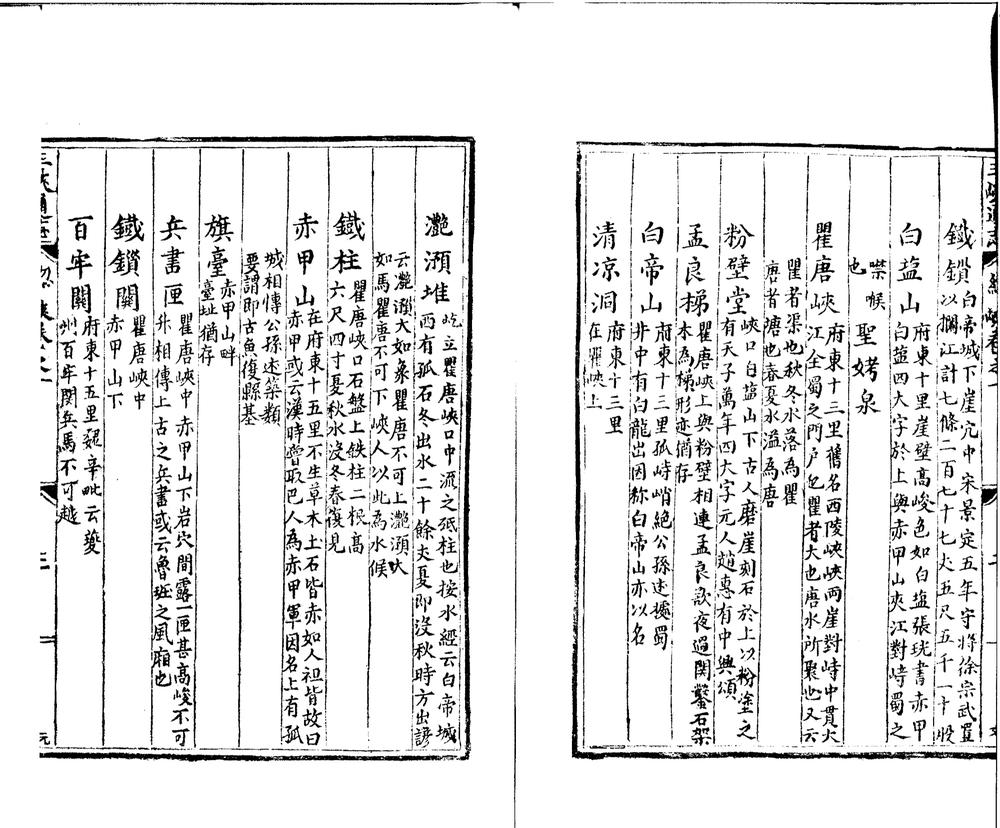 鐵鎖白帝城下崖穴中宋景定五年守將徐宗武置
以攔江計七條二百七十七丈五尺五千一十股
白盐山府東十里崖壁高峻色如白盐張珖書赤甲
白盐四大字於上與赤甲山夾江對峙蜀之
喋喉 聖姥泉
也
瞿唐峽府東十三里舊名西陵峽峽兩崖對峙中貫大
江全蜀之門户也瞿者大也唐水所聚也又云
瞿者渠也秋冬水落為瞿
唐者塘也春夏水溢為唐
粉壁堂峽口白盐山下古人磨崖刻石於上以粉塗之
有天子萬年四大字元人趙惠有中興頌
孟良梯瞿唐峽上與粉壁相連孟良歌夜過関鑿石架
木為梯形亦猶存
白帝山府東十三里孤峙峭絶公孫述據蜀
井中有白龍出因称白帝山亦以名
清凉洞府東十三里
在瞿峽上
灧澦堆屹立瞿唐峽口中流之砥柱也按水經云白帝城
西有孤石冬出水二十餘丈夏即没秋時方出諺
云灧澦大如象瞿唐不可上灧澦大
如馬瞿唐不可下峽人以此為水候
鐵柱瞿唐峽口石盤上鉄柱二根高
六尺四寸夏秋水没冬春復見
赤甲山在府東十五里不生草木土石皆赤如人袒皆故曰
赤甲或云漢時嘗取巴人為赤甲軍因名上有孤
城相傳公孫述築類
要謂即古魚復縣基
旗臺赤甲山畔
臺址猶存
兵書匣瞿唐峽中赤甲山下岩穴間露一匣甚高峻不可
升相傳上古之兵書或云魯班之風廂也
鐵鎖關瞿唐峽中
赤甲山下
百牢關府東十五里覩辛毗云夔
州百牢関兵馬不可越
三